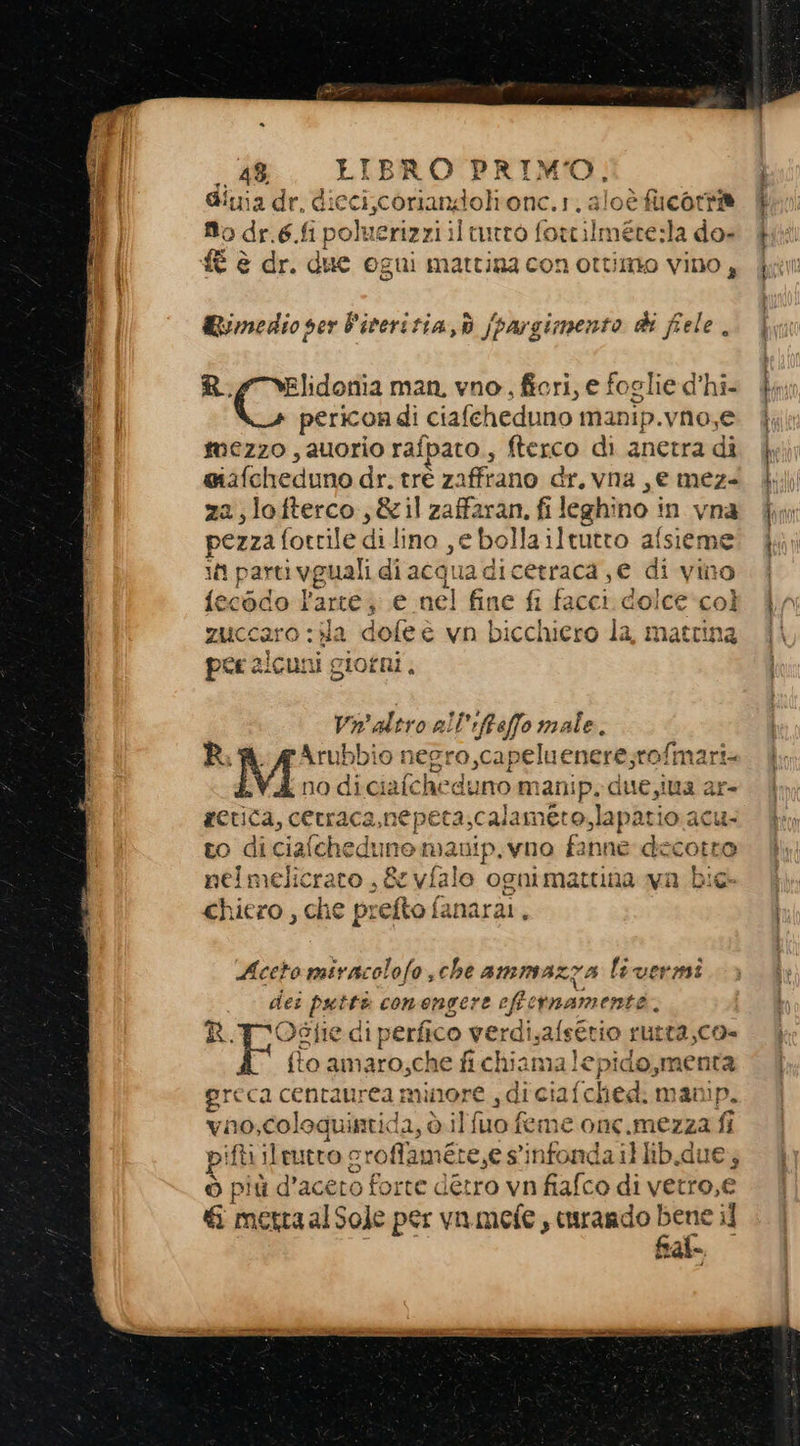 48 LIBRO PRIMO.
diuia dr. dieci,coriandoli onc.1. aloè ſucotri
no dr.6.ſi poluerizzi il tutto ſottilmẽte:la do-
ſẽ è dr. due ogni mattina con ottimo vino,
Rimedio per l'iteritia, ò ſpargimento di fiele.
R. CElidonia man. vno, fiori, e foglie d'hi-
pericon di ciaſcheduno manip.vno,e
mezzo, auorio raſpato, ſterco di anetra di
ciaſcheduno dr. trè zaffrano dr. vna, e mez-
za, lo ſterco, & il zaffaran. ſi leghino in vna
pezza ſottile di lino, e bolla il tutto aſsieme
in parti vguali di acqua di cetraca, e di vino
ſecõdo l'arte, e nel fine ſi facci dolce col
zuccaro: la doſe è vn bicchiero la mattina
per alcuni giorni.
Vn'altro all'iſteſſo male.
R. MArubbio negro,capeluenere,roſmari-
no di ciaſcheduno manip. due,iua ar-
getica, cetraca,nepeta,calamẽto,lapatio acu-
to di ciaſcheduno manip. vno fanne decotto
nel melicrato, & vſalo ogni mattina vn bic-
chiero, che preſto ſanarai.
Aceto miracoloſo, che ammazza li vermi
dei putti con ongere eſternamente.
R. FOglie di perſico verdi,aſsẽtio rutta,co-
ſto amaro,che ſi chiama lepido,menta
greca centaurea minore, di ciaſched. manip.
vno,coloquintida, ò il ſuo ſeme onc.mezza ſi
piſti il tutto groſſamẽte,e s'infonda il lib.due,
ò più d'aceto forte dẽtro vn fiaſco di vetro,e
ſi metta al Sole per vn meſe, curando bene il
fiaſ-